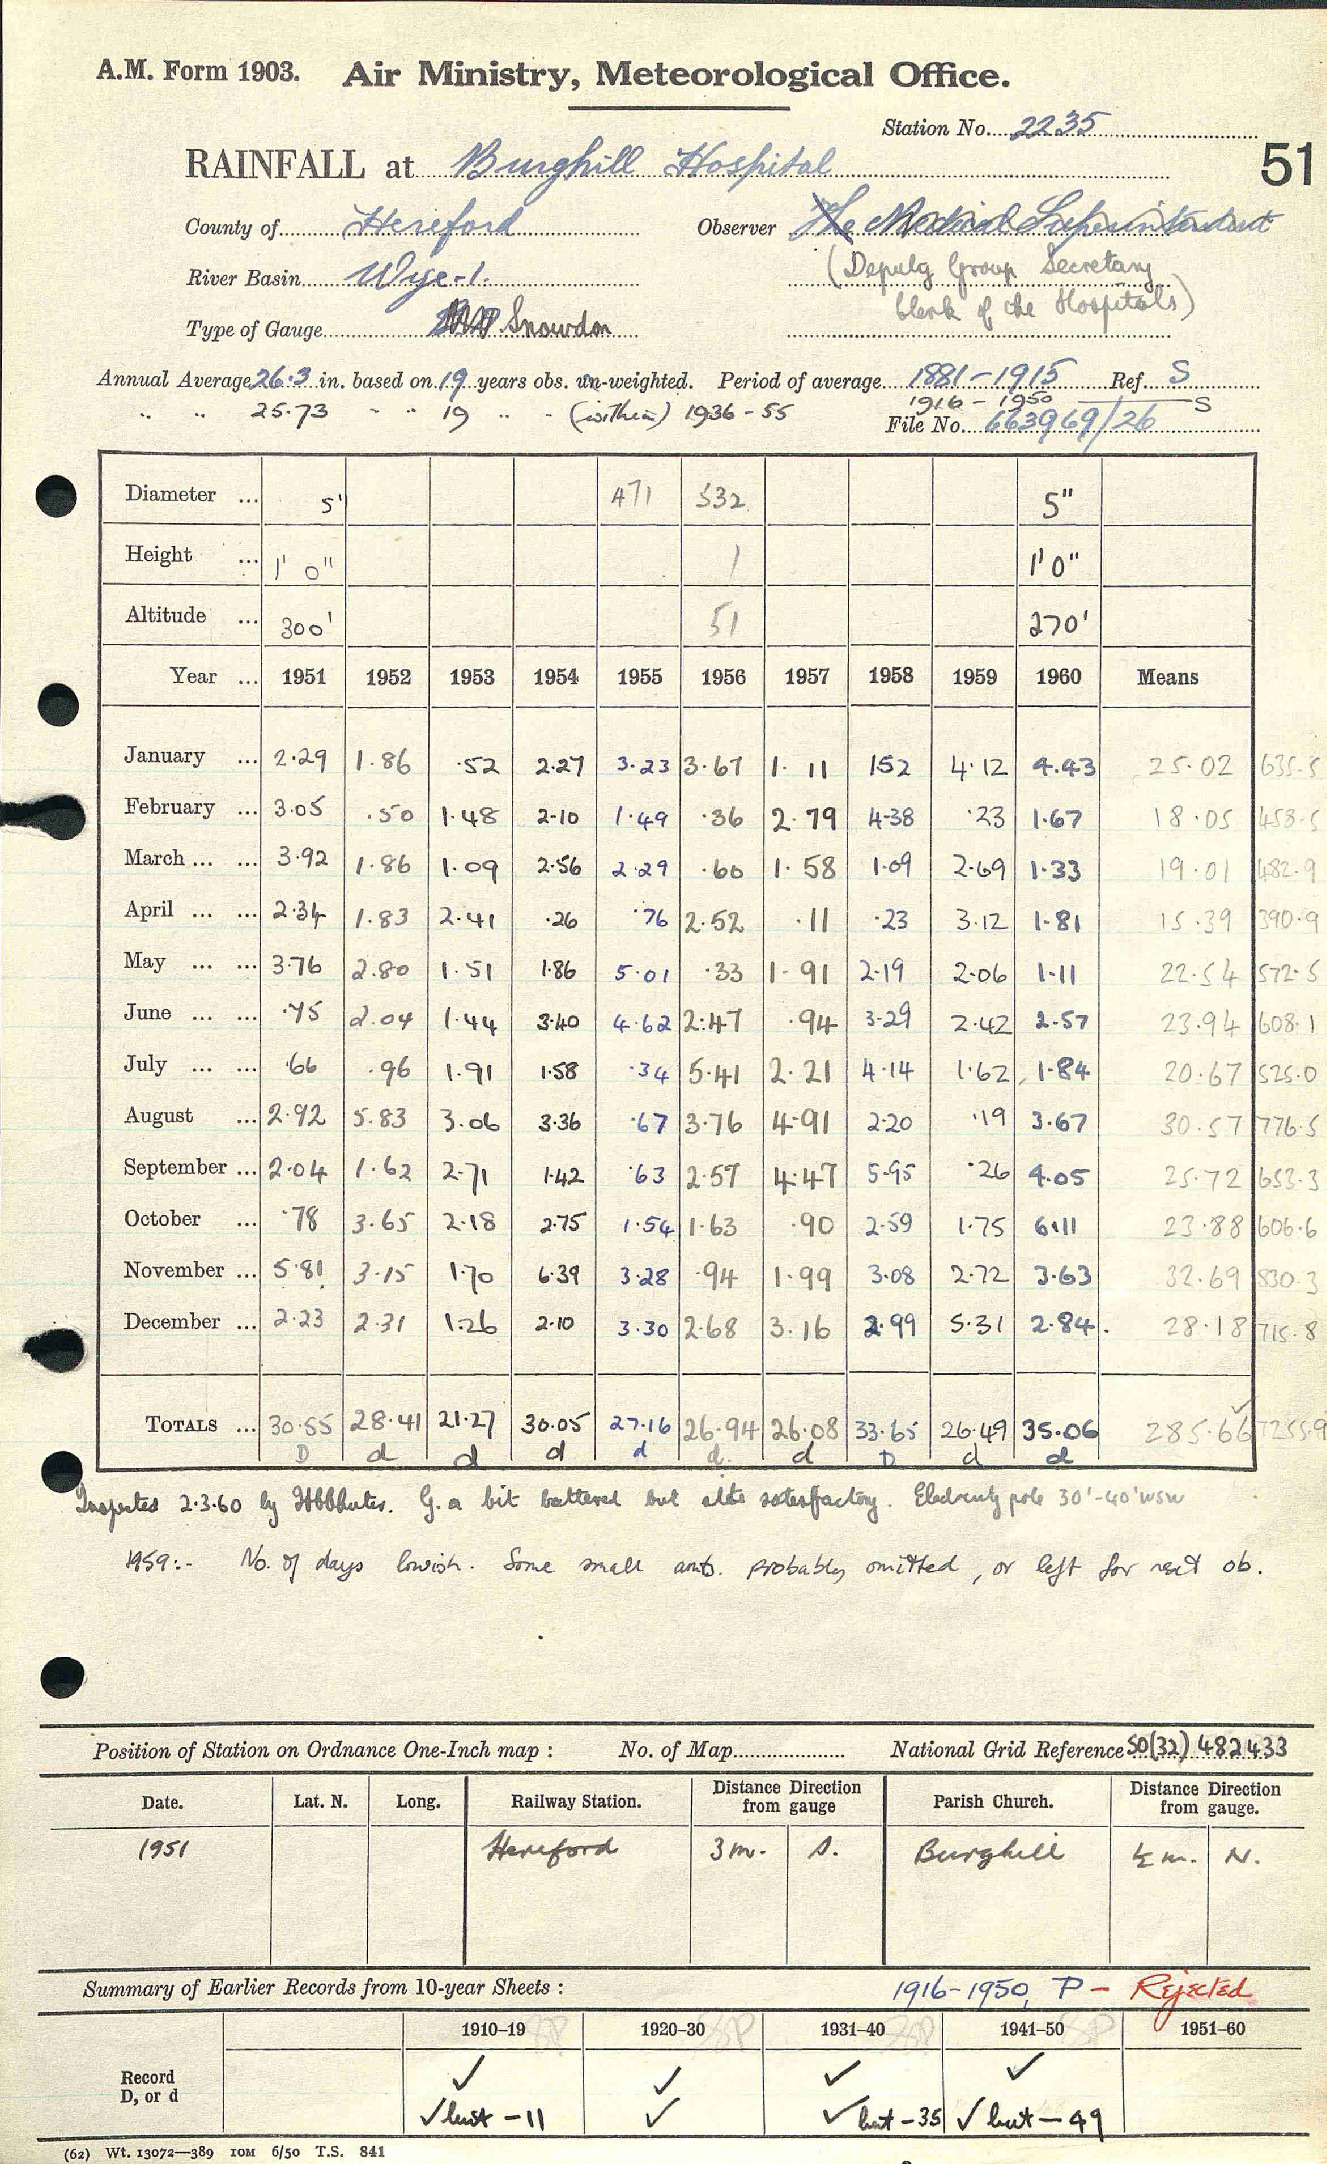 A.M. Form 1903. Air Ministry, Meteorological Office.
Station No. 2235
RAINFALL at Burghill Hospital
51
County of Hereford Observer The Medical Superintendent
River Basin Wye-1. (Deputy Group Secretary
Clerk of the Hospitals)
Type of Gauge Snowdon
Annual Average 26.3 in. based on 19 years obs. un-weighted. Period of average 1881-1915 Ref. S
" " 25.73 " " 19 " " (within) 1936-55 1916-1950 S
File No. 663969/26
Diameter ... 5" 471 532 5"
Height ... 1' 0" 1 1' 0"
Altitude ... 300' 51 270'
Year ... 1951 1952 1953 1954 1955 1956 1957 1958 1959 1960 Means
January ... 2.29 1.86 .52 2.27 3.23 3.67 1.11 1.52 4.12 4.43 25.02 635.5
February ... 3.05 .50 1.48 2.10 1.49 .36 2.79 4.38 .23 1.67 18.05 458.5
March ... ... 3.92 1.86 1.09 2.56 2.29 .60 1.58 1.09 2.69 1.33 19.01 482.9
April ... ... 2.34 1.83 2.41 .26 .76 2.52 .11 .23 3.12 1.81 15.39 390.9
May ... ... 3.76 2.80 1.51 1.86 5.01 .33 1.91 2.19 2.06 1.11 22.54 572.5
June ... ... .75 2.04 1.44 3.40 4.62 2.47 .94 3.29 2.42 2.57 23.94 608.1
July ... ... .66 .96 1.91 1.58 .34 5.41 2.21 4.14 1.62 1.84 20.67 525.0
August ... 2.92 5.83 3.06 3.36 .67 3.76 4.91 2.20 .19 3.67 30.57 776.5
September ... 2.04 1.62 2.71 1.42 .63 2.57 4.47 5.95 .26 4.05 25.72 653.3
October ... .78 3.65 2.18 2.75 1.54 1.63 .90 2.59 1.75 6.11 23.88 606.6
November ... 5.81 3.15 1.70 6.39 3.28 .94 1.99 3.08 2.72 3.63 32.69 830.3
December ... 2.23 2.31 1.26 2.10 3.30 2.68 3.16 2.99 5.31 2.84 28.18 715.8
TOTALS ... 30.55 28.41 21.27 30.05 27.16 26.94 26.08 33.65 26.49 35.06 285.66 7255.9
D d d d d d d D d d
Inspected 2.3.60 by G. a bit battered but satisfactory. Electricity pole 30'-40' WSW
1959:- No. of days lowish. Some small amts. probably omitted, or left for next ob.
Position of Station on Ordnance One-Inch map : No. of Map National Grid Reference SO(32) 482433
Date. Lat. N. Long. Railway Station. Distance from gauge Direction Parish Church. Distance from gauge. Direction
1951 Hereford 3 m. S. Burghill ½ m. N.
Summary of Earlier Records from 10-year Sheets : 1916-1950, P - Rejected
1910-19 1920-30 1931-40 1941-50 1951-60
Record ✓ ✓ ✓ ✓
D, or d ✓ but -11 ✓ ✓ but -35 ✓ but -49
(62) Wt. 13072—389 IOM 6/50 T.S. 841